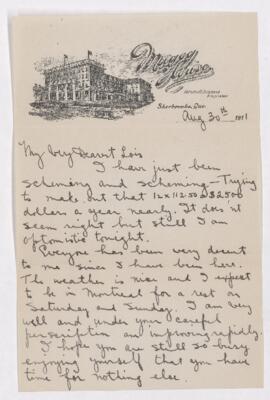 Magog
House
Sherbrooke, Que.
Aug 30th 1911
My Very Dearest Lois
I have just been
scheming and scheming - Trying
to make out that 12 x 112.50 = $2500
dollars a year nearly. It does n't
seem right but still I am
optomistic tonight.
Everyone has been very decent
to me since I have been here.
The weather is nice and I expect
to be in Montreal for a rest on
Saturday and Sunday. I am very
well and under your careful
perscription am improving rapidly.
I hope you are still so busy
enjoying yourself that you have
time for nothing else.